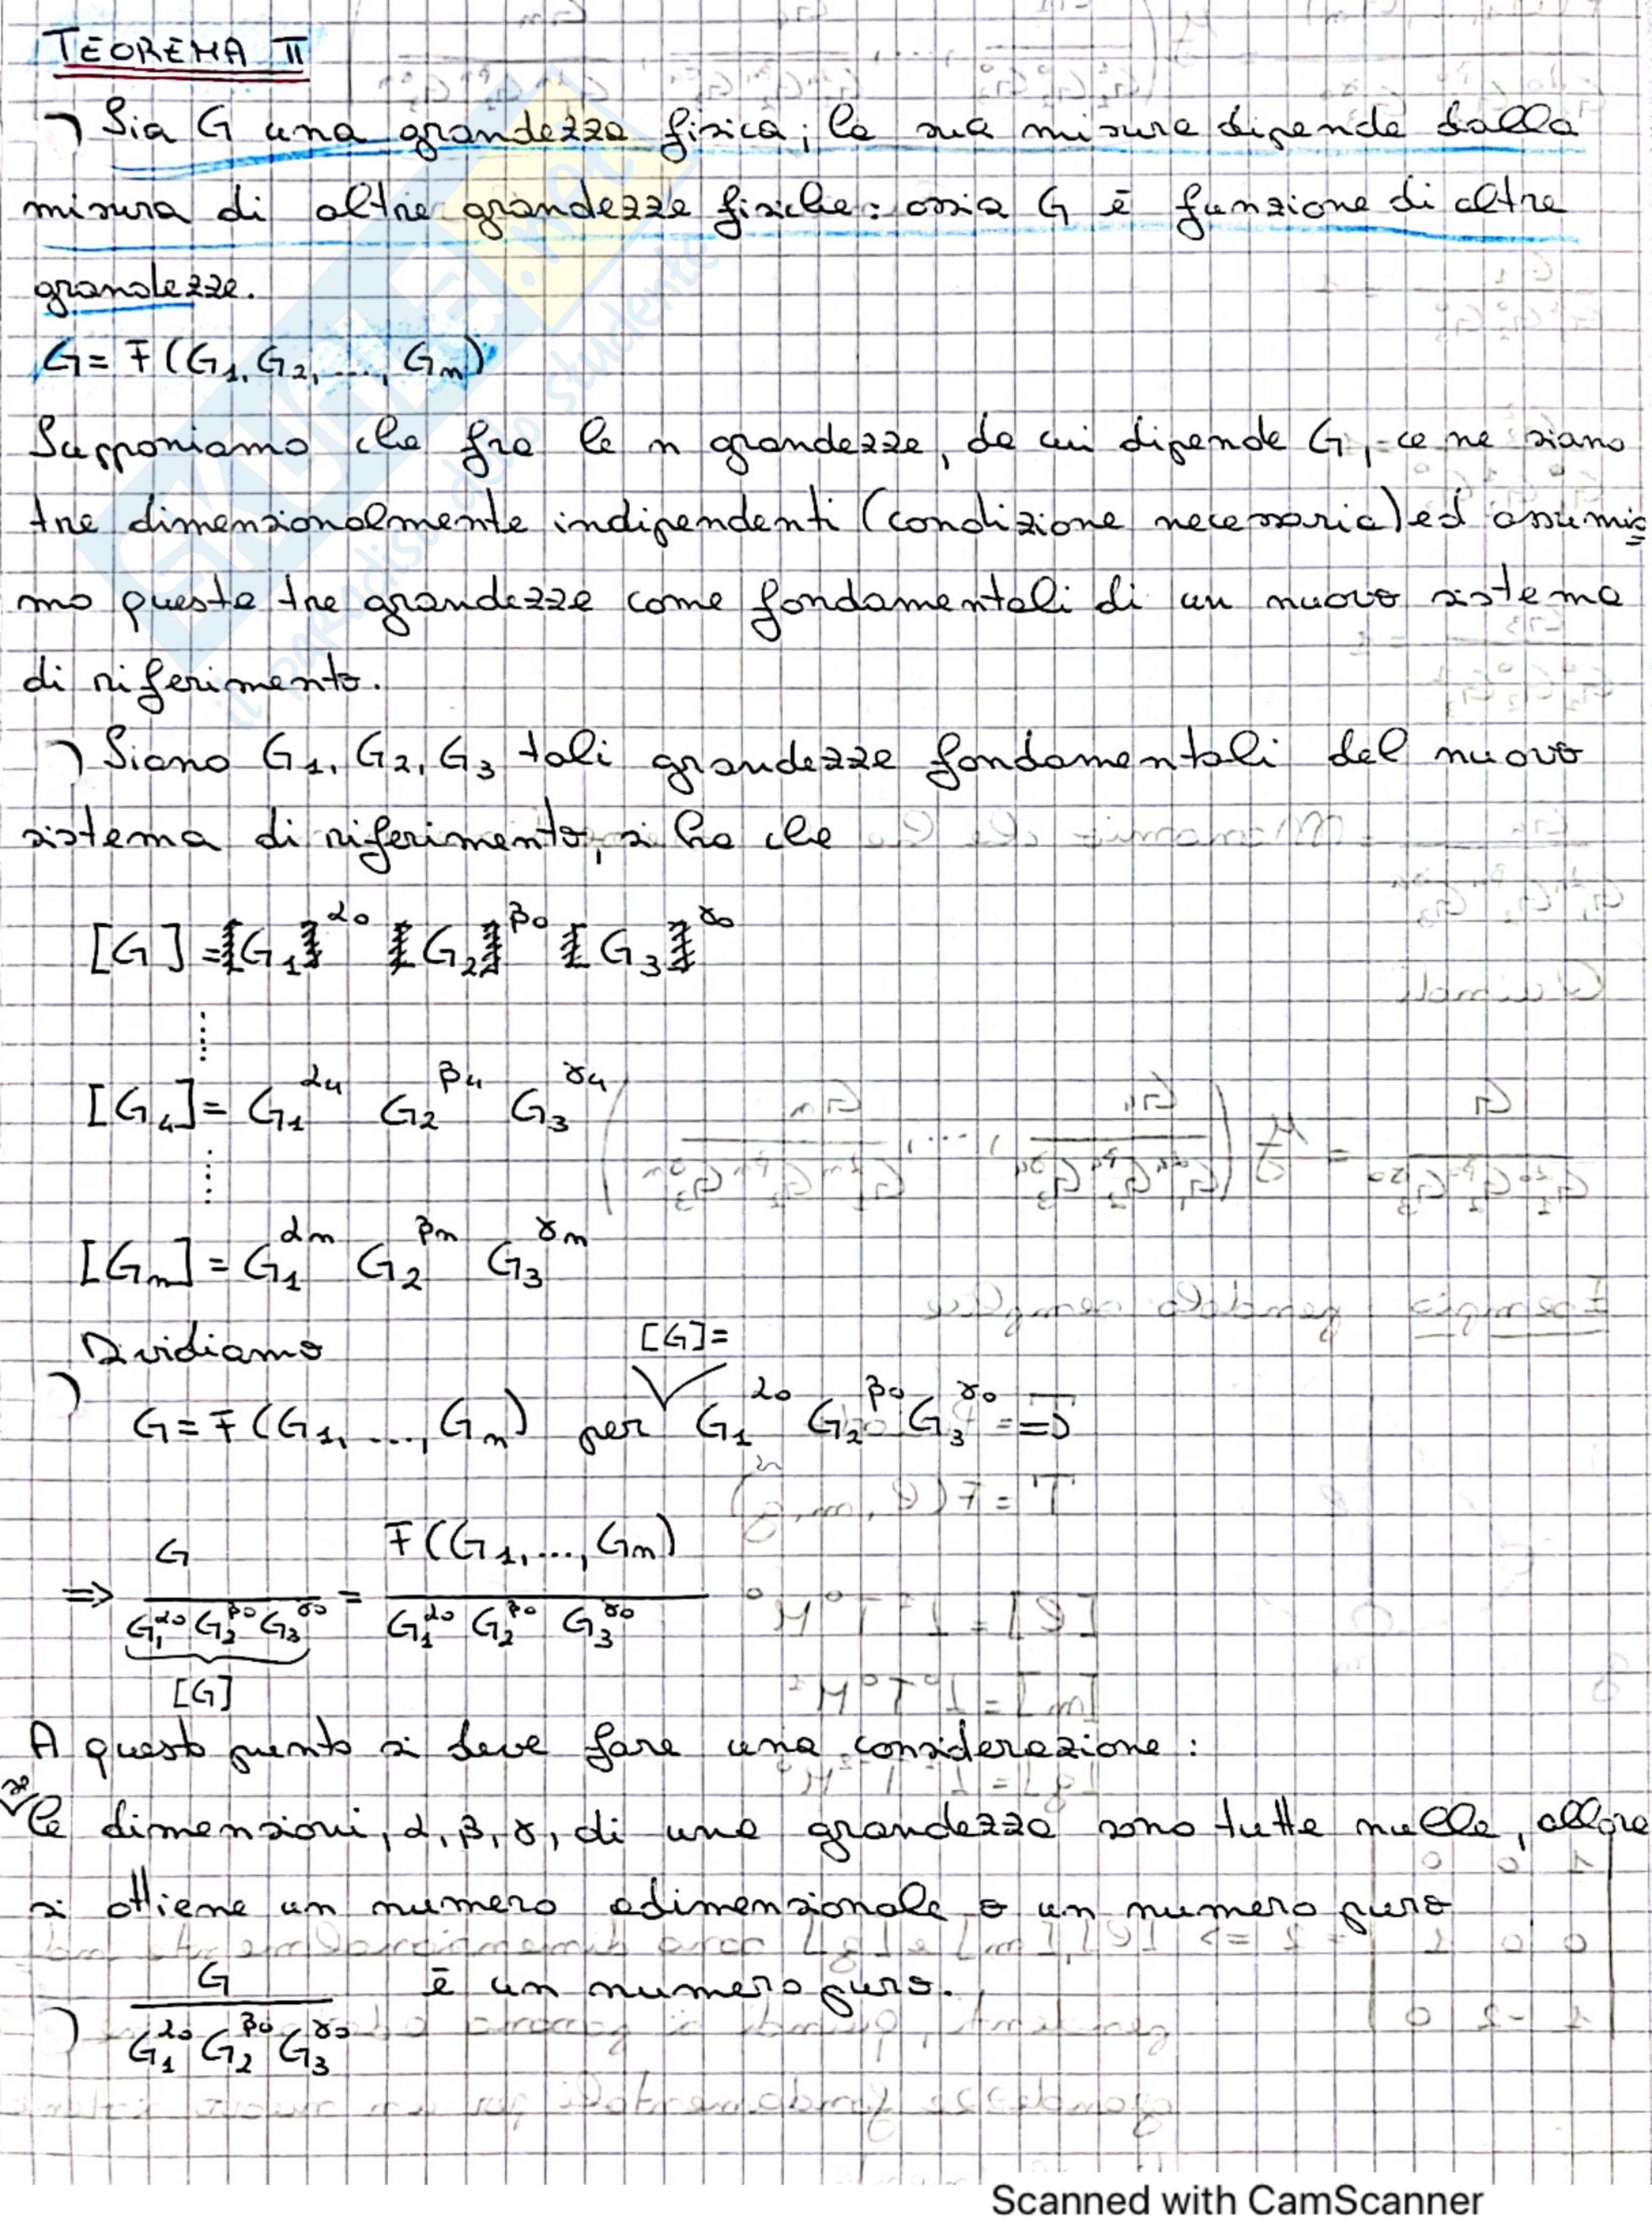 TEOREMA π
) Sia G una grandezza fisica; la sua misura dipende dalla
misura di altre grandezze fisiche: ossia G è funzione di altre
grandezze.
G = F(G₁, G₂, ...., Gₙ)
Supponiamo che fra le n grandezze, da cui dipende G, ce ne siano
tre dimensionalmente indipendenti (condizione necessaria) ed assumia
mo queste tre grandezze come fondamentali di un nuovo sistema
di riferimento.
) Siano G₁, G₂, G₃ tali grandezze fondamentali del nuovo
sistema di riferimento, si ha che
[G] = G₁^α₀ G₂^β₀ G₃^γ₀
⋮
[G₄] = G₁^α₄ G₂^β₄ G₃^γ₄
⋮
[Gₙ] = G₁^αₙ G₂^βₙ G₃^γₙ
Dividiamo [G]=
) G = F(G₁, ...., Gₙ) per G₁^α₀ G₂^β₀ G₃^γ₀
⇒ G / (G₁^α₀ G₂^β₀ G₃^γ₀) = F(G₁, ..., Gₙ) / (G₁^α₀ G₂^β₀ G₃^γ₀)
[G]
A questo punto si deve fare una considerazione:
se le dimensioni, α, β, γ, di una grandezza sono tutte nulle, allora
si ottiene un numero adimensionale o un numero puro
) G / (G₁^α₀ G₂^β₀ G₃^γ₀) è un numero puro.
SKUOLA.net
il paradiso dello studente
Scanned with CamScanner